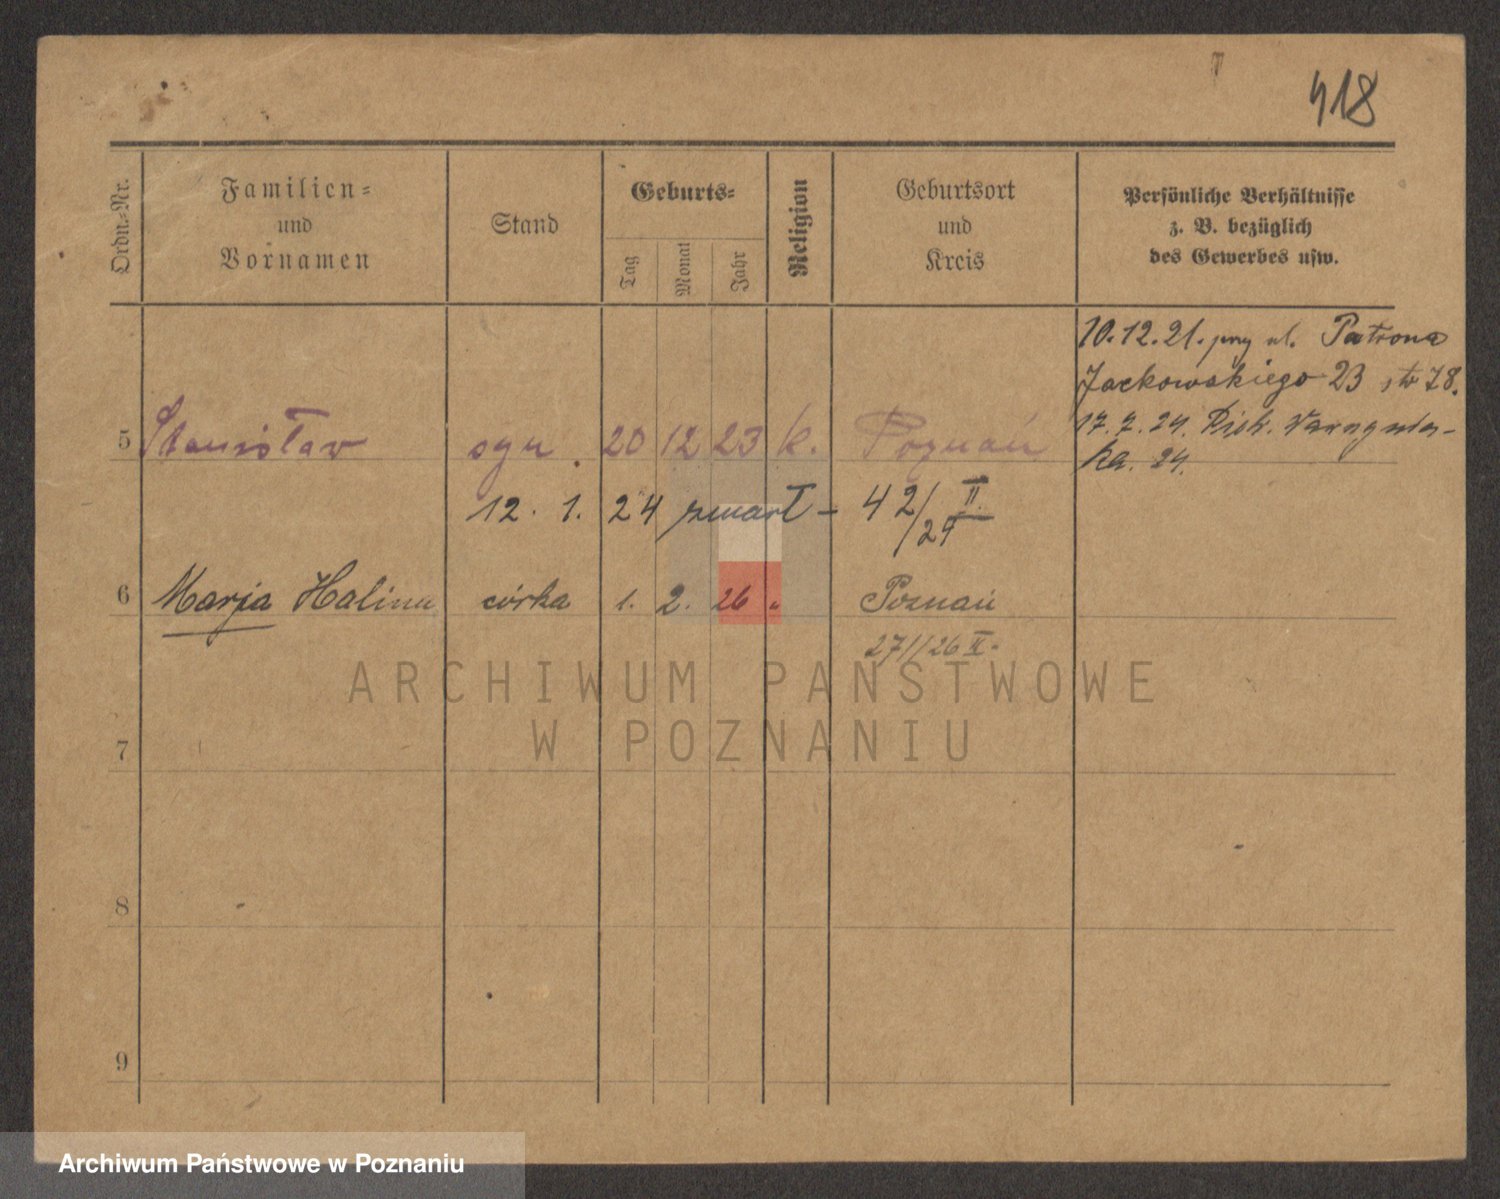 418
Ordn.-Nr.
Familien-
und
Vornamen
Stand
Geburts-
Tag
Monat
Jahr
Religion
Geburtsort
und
Kreis
Persönliche Verhältnisse
z. B. bezüglich
des Gewerbes usw.
10.12.21. przy ul. Patrona
Jackowskiego 23 78.
17.7.24.
ka. 24.
5 Stanisław syn. 20 12 23 k. Poznań
12. 1. 24 zmarł – 42/24 II
6 Marja Halina córka 1. 2. 26 " Poznań
27//26 II.
7
8
9
ARCHIWUM PAŃSTWOWE
W POZNANIU
Archiwum Państwowe w Poznaniu